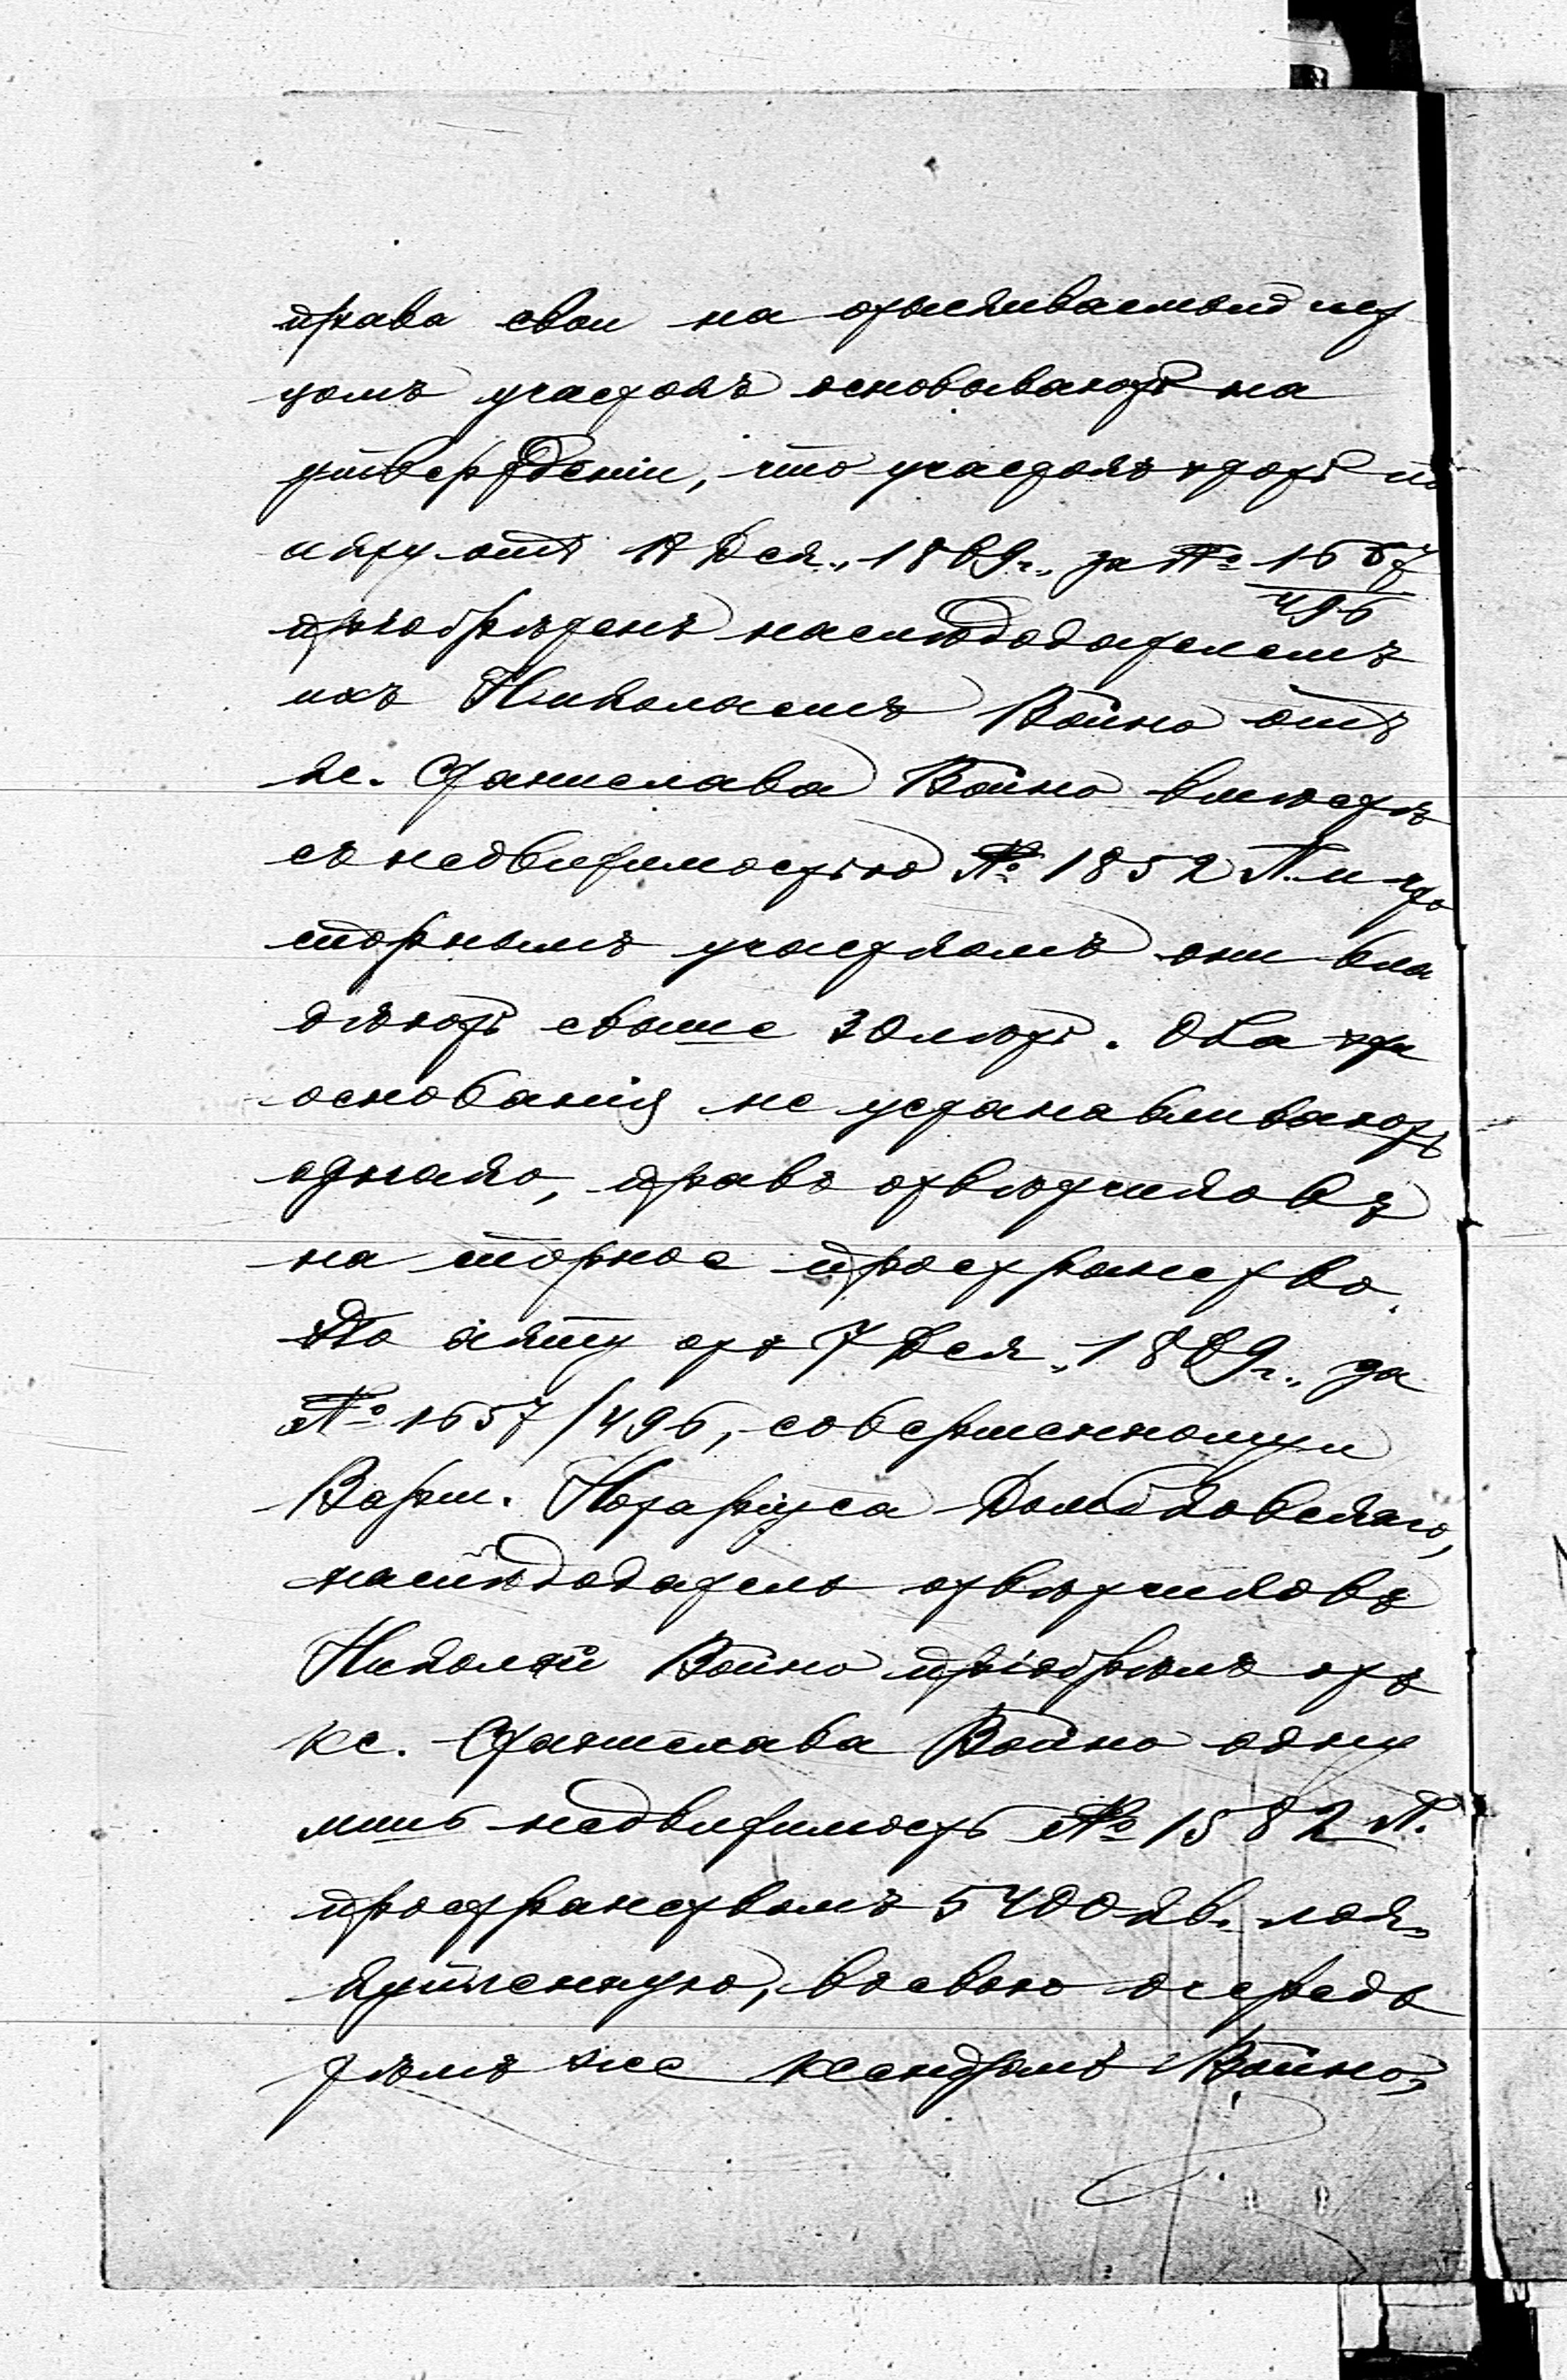 права свои на отыскиваемый ист
цомъ участокъ основываютъ на
утвержденіи, что участокъ этотъ по
акту отъ 17 Дек. 1869 г. за № 1657
496
пріобрѣтенъ наслѣдодателемъ
ихъ Николаемъ Войно отъ
кс. Станислава Войно вмѣстѣ
съ недвижимостію № 1852 Л. и что
спорнымъ участкомъ они вла
дѣютъ свыше 30 лѣтъ. Оба эти
основанія не устанавливаютъ
однако, правъ отвѣтчиковъ
на спорное пространство.
По акту отъ 7 Дек. 1869 г. за
№ 1657/496, совершенному у
Варш. Нотаріуса Домбковскаго,
наслѣдодатель отвѣтчиковъ
Николай Войно пріобрѣлъ отъ
кс. Станислава Войно одну
лишь недвижимость № 1582 Л.
пространствомъ 5400 кв. лок.
купленную, въ свою очередь
тѣмъ же ксендзомъ Войно,